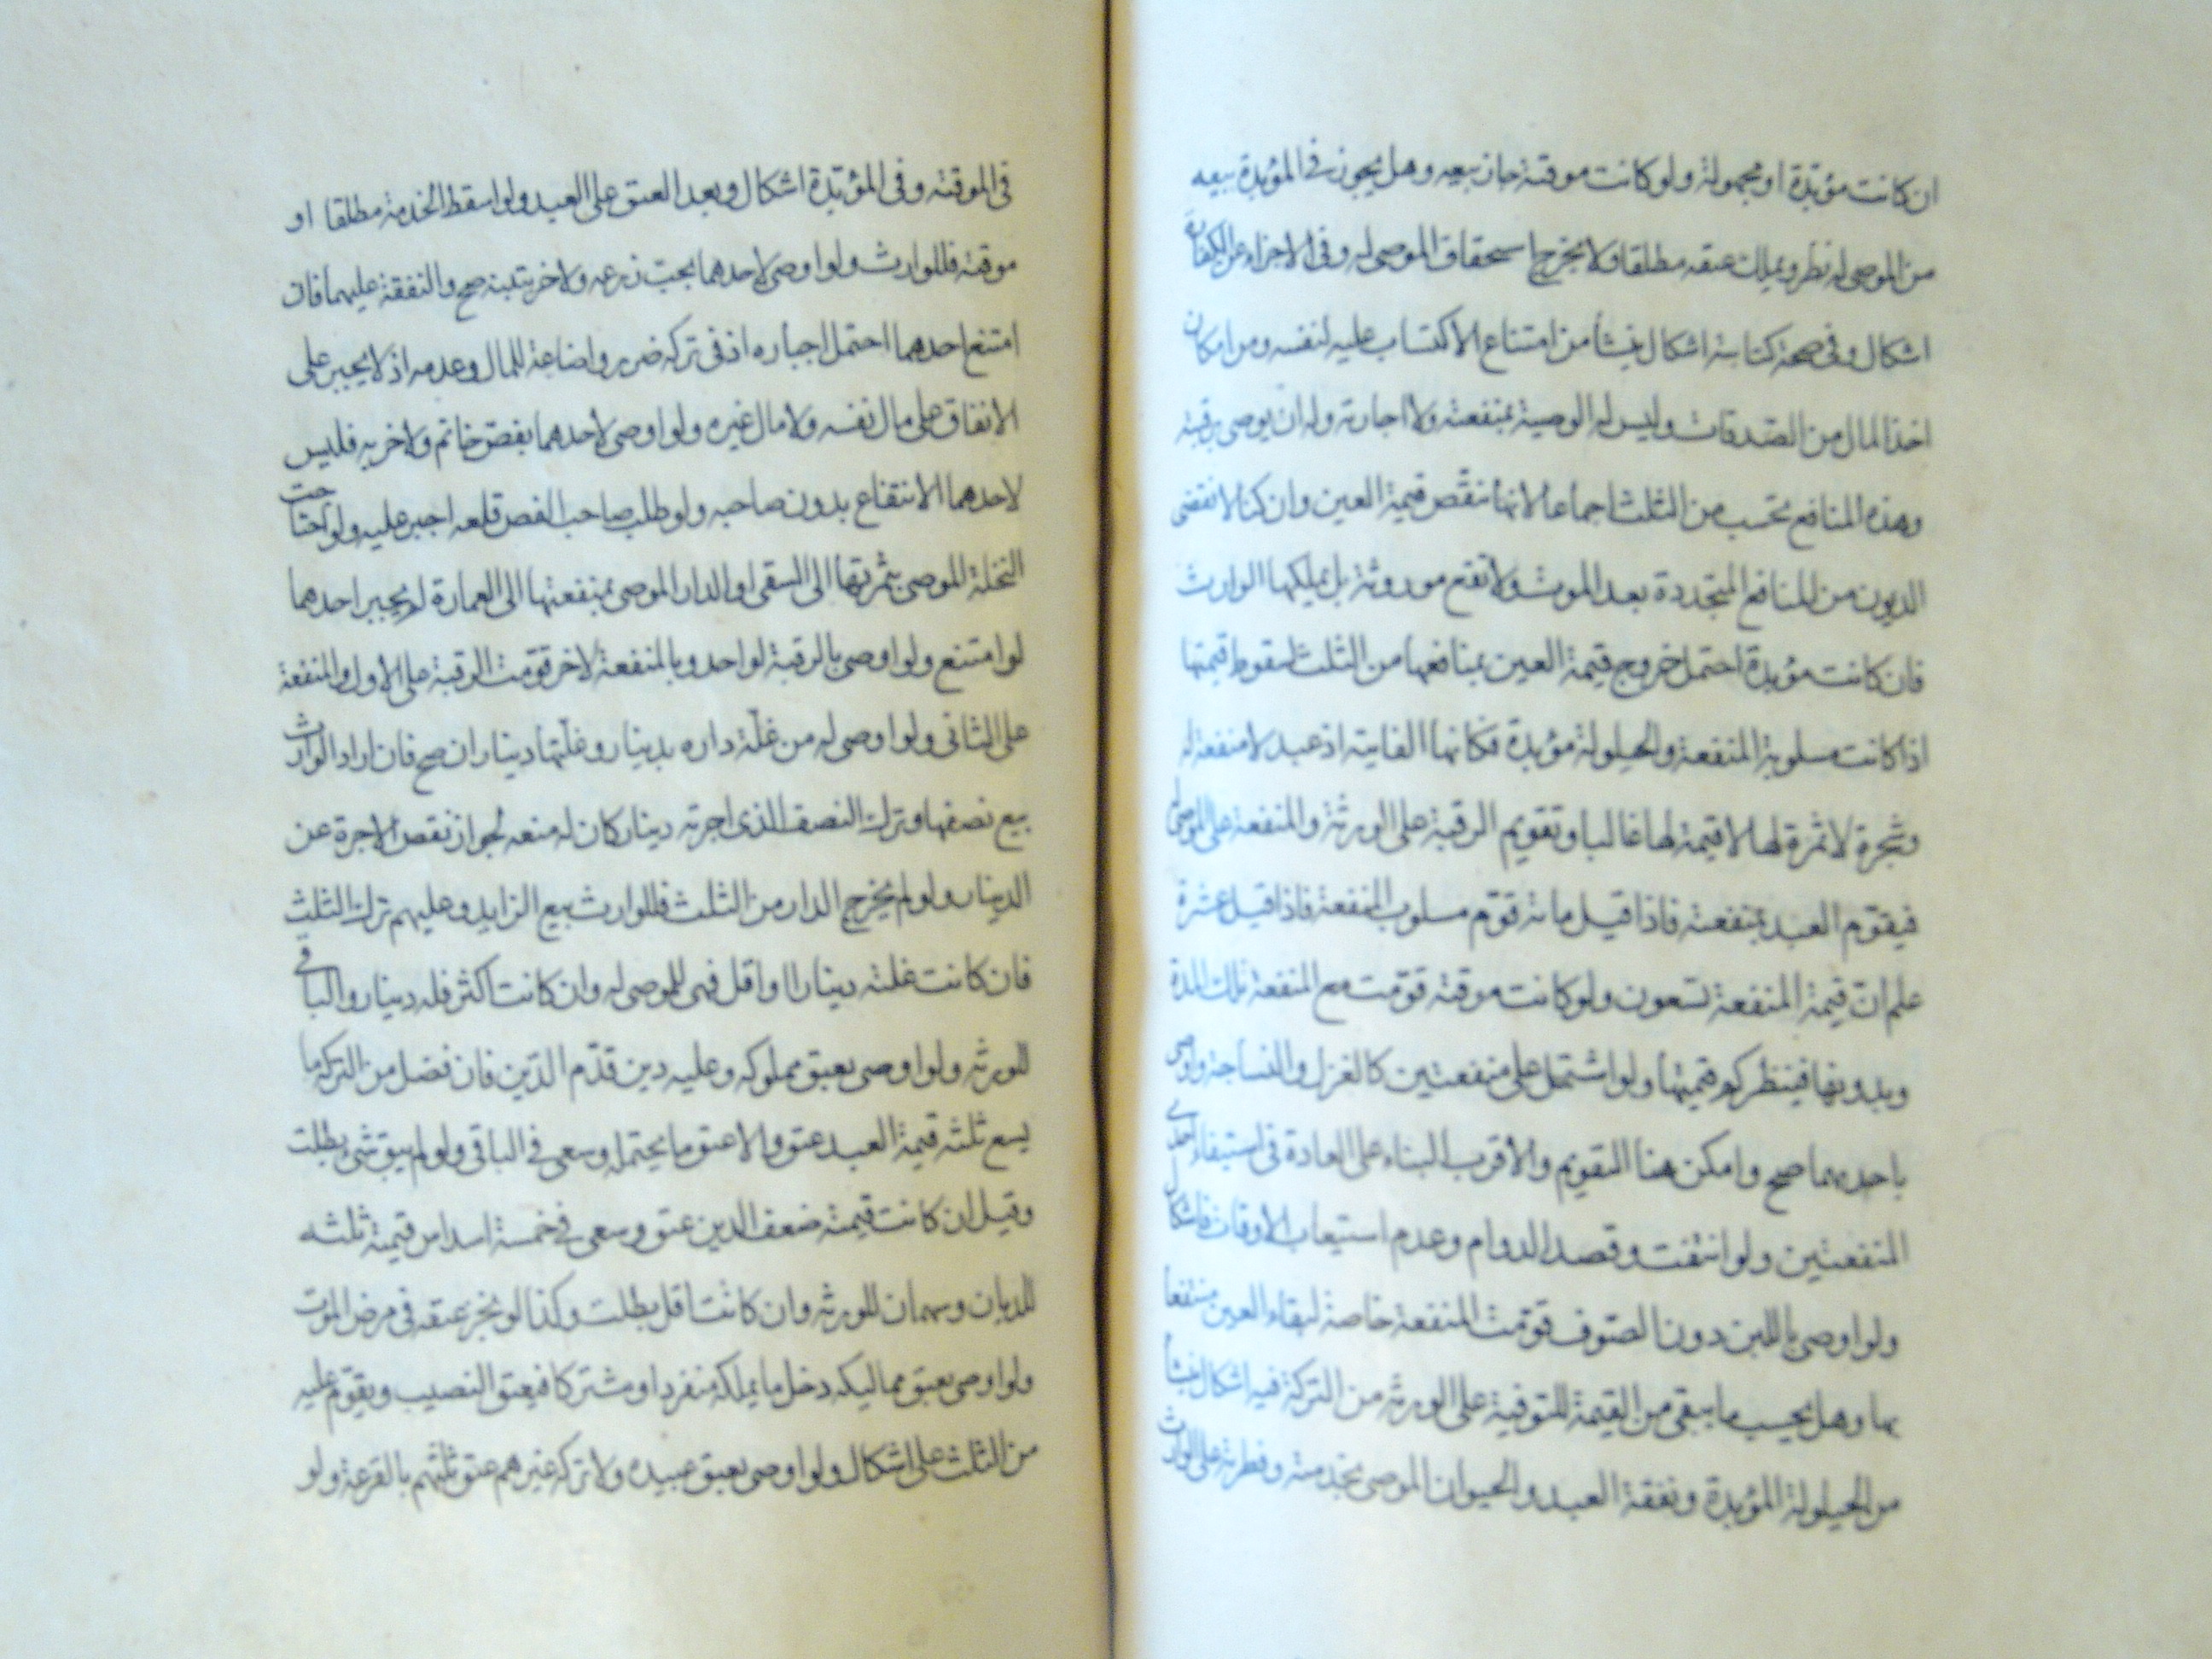 ان كانت مؤبّدة او مجهولة ولو كانت موقتة جاز بيعه وهل يجوز في المؤبدة بيعه
من الموصى له نظر ويملك عتقه مطلقا ولا يخرج استحقاق الموصى له وفى الاجزاء عن الكفارة
اشكال وفى صحة كتابته اشكال ينشأ من امتناع الاكتساب عليه لنفسه ومن امكان
اخذ المال من الصدقات وليس له الوصية بمنفعته ولا اجارته وله ان يوصى برقبته
وهذه المنافع تحتسب من الثلث اجماعا لانها تنقص قيمة العين وان كنا لا نقضى
الديون من المنافع المتجددة بعد الموت ولا تقع موروثة بل يملكها الوارث
فان كانت مؤبدة احتمل خروج قيمة العين بمنافعها من الثلث لسقوط قيمتها
اذا كانت مسلوبة المنفعة والحيلولة مؤبدة فكانها الفايتة اذ عبد لا منفعة له
وشجرة لا ثمرة لها لا قيمة لها غالبا وتقويم الرقبة على الورثة والمنفعة على الموصى له
فيقوّم العبد بمنفعته فاذا قيل مائة قوّم مسلوب المنفعة فاذا قيل عشرة
علم انّ قيمة المنفعة تسعون ولو كانت موقتة قوّمت مع المنفعة تلك المدة
وبدونها فينظر كم قيمتها ولو اشتمل على منفعتين كالغزل والنساجة واوصى
باحدهما صح وامكن هنا التقويم والاقرب البناء على العادة فى استيفاء احدى
المنفعتين ولو انتفت وقصد الدوام وعدم استيعاب الاوقات فاشكال
ولو اوصى باللبن دون الصّوف قوّمت المنفعة خاصة لبقاء العين منتفعا
بها وهل يحسب ما يبقى من القيمة للتوفية على الورثة من التركة فيه اشكال ينشأ
من الحيلولة المؤبدة ونفقة العبد والحيوان الموصى بخدمته وفطرته على الوارث
فى الموقتة وفى المؤبّدة اشكال وبعد العتق على العبد ولو اسقط الخدمة مطلقا او
موقتة فللوارث ولو اوصى لاحدهما بحبّ زرعه ولاخر بتبنه صح والنفقة عليهما فان
امتنع احدهما احتمل اجباره اذ فى تركه ضرر واضاعة للمال وعدمه اذ لا يجبر على
الانفاق على مال نفسه ولا مال غيره ولو اوصى لاحدهما بفصّ خاتم ولاخر به فليس
لاحدهما الانتفاع بدون صاحبه ولو طلب صاحب الفص قلعه اجبر عليه ولو احتاجت
النخلة الموصى بثمرتها الى السقى او الدار الموصى بمنفعتها الى العمارة لم يجبر احدهما
لو امتنع ولو اوصى بالرقبة لواحد وبالمنفعة لاخر قوّمت الرقبة على الاول والمنفعة
على الثانى ولو اوصى له من غلّة داره بدينار وغلّتها ديناران صح فان اراد الوارث
بيع نصفها وترك النصف الذى اجرته دينار كان له منعه لجواز نقص الاجرة عن
الدينار ولو لم يخرج الدار من الثلث فللوارث بيع الزايد وعليهم ترك الثلث
فان كانت غلته دينارا او اقل فهى للموصى له وان كانت اكثر فله دينار والباقى
للورثة ولو اوصى بعتق مملوكه وعليه دين قدّم الدّين فان فضل من التركة ما
يسع ثلثه قيمة العبد عتق والا عتق ما يحتمله وسعى فى الباقى ولو لم يبق شى بطلت
وقيل ان كانت قيمته ضعف الدين عتق وسعى فى خمسة اسداس قيمته ثلثه
للديان وسهمان للورثة وان كانت اقل بطلت وكذا لو نجز عتقه فى مرض الموت
ولو اوصى بعتق مماليكه دخل ما يملكه منفردا ومشتركا فيعتق النصيب ويقوّم عليه
من الثلث على اشكال ولو اوصى بعتق عبيده ولا تركة غيرهم عتق ثلثهم بالقرعة ولو